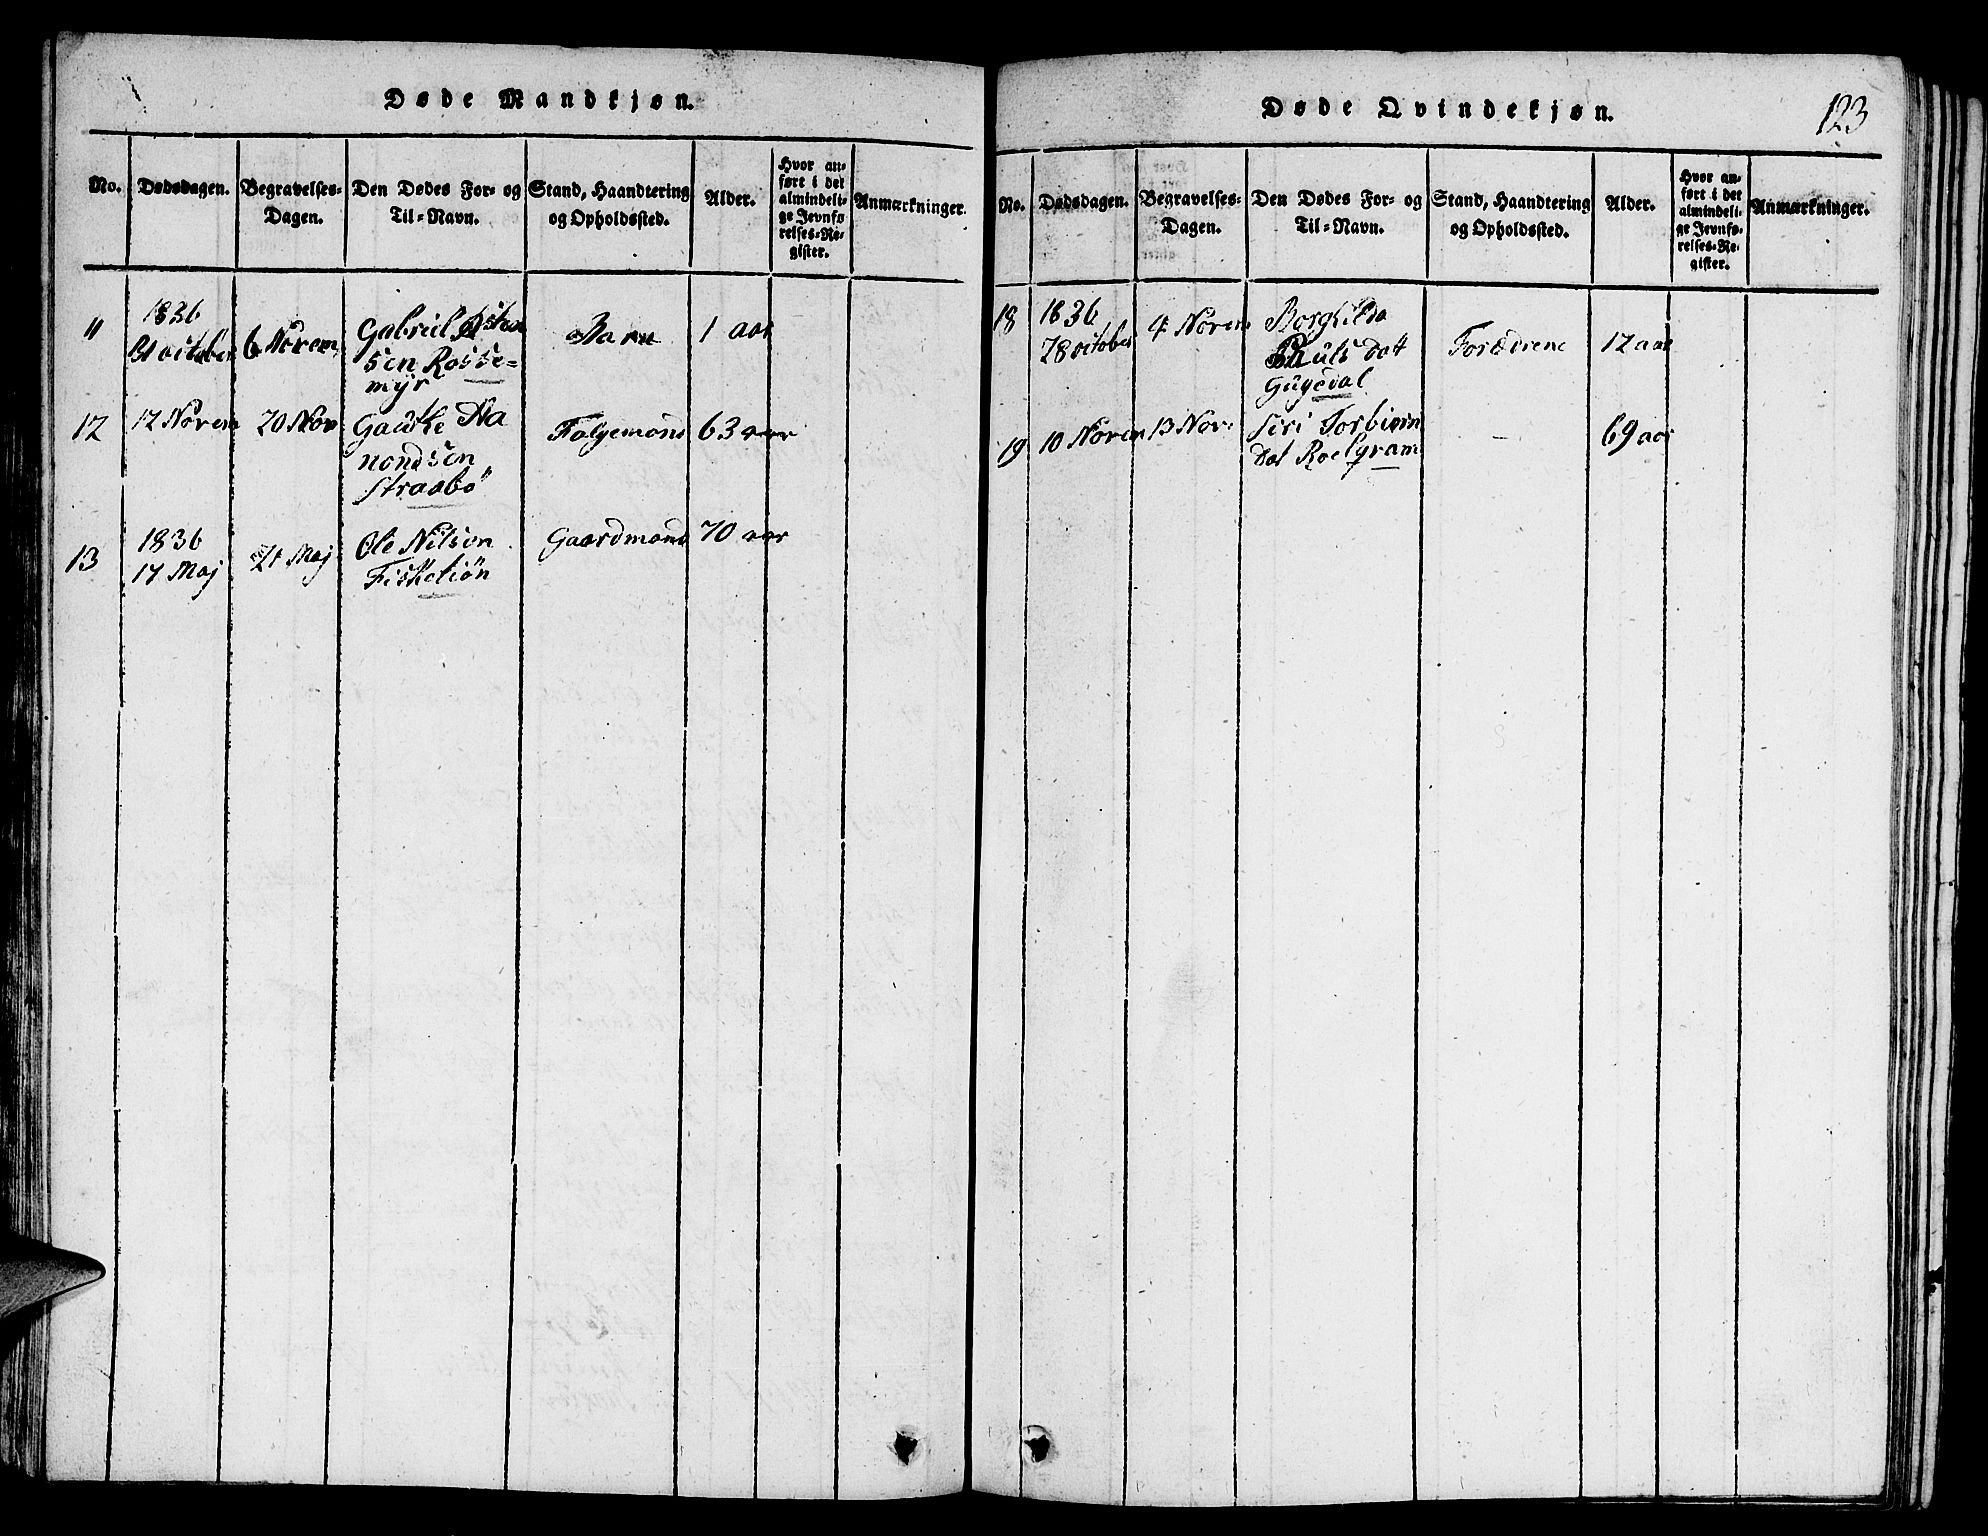 Døde Mandkjøn.
No. Dødsdagen. Begravelses-Dagen. Den Dødes For- og Til-Navn. Stand, Haandtering og Opholdssted. Alder. Hvor anført i det almindelige Jevnførelses-Register. Anmærkninger.
11 1836 31 october 6 Novem Gabriel
sen Rosse-
myr Barn 1 aar
12 12 Novem 20 Nov Gauthe Aa
nondsen
Straabö Folgemand 63 aar
13 1836
17 Maj 21 Maj Ole Nilson
Fisketiön Gaardmand 70 aar
Døde Qvindekjøn.
123
No. Dødsdagen. Begravelses-Dagen. Den Dødes For- og Til-Navn. Stand, Haandtering og Opholdssted. Alder. Hvor anført i det almindelige Jevnførelses-Register. Anmærkninger.
18 1836
28 october 4 Novem Borghild
Pauls Dott
Gÿvedal Forældrene 12 aar
19 10 Novem 13 Nov: Siri Torbiørn
Dat 69 aar